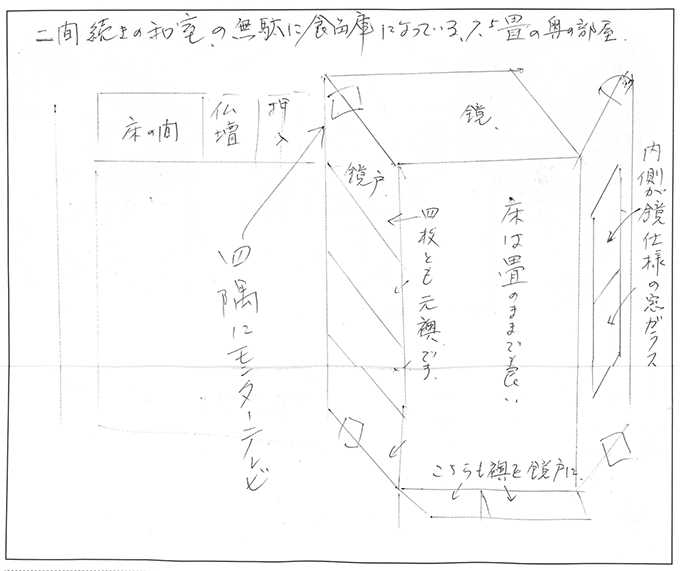 二間続きの和室の無駄に食品庫になっている、7.5畳の奥の部屋.
床の間
仏壇
押入
鏡.
鏡戸.
四枚とも元襖です.
床は畳のままで良い
内側が鏡仕様の窓ガラス
四隅にモニターテレビ
こちらも襖を鏡戸に.